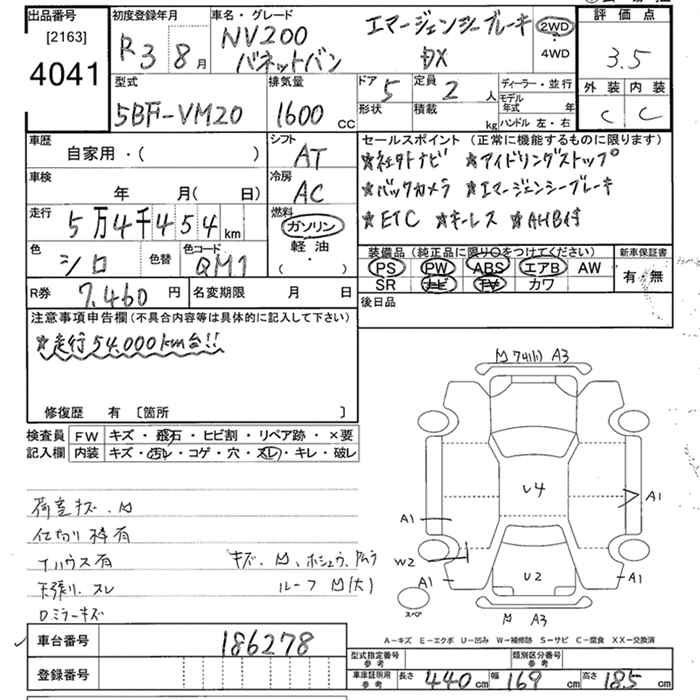 出品番号 初度登録年月 車名・グレード 評価点
[2163] R3 8月 NV200 エマージェンシーブレーキ 2WD 3.5
4041 バネットバン DX 4WD
型式 排気量 ドア 5 定員 2 人 ディーラー・並行 外装 内装
5BF-VM20 1600 cc 形状 積載 kg モデル年式 年 C C
ハンドル 左・右
車歴 シフト セールスポイント (正常に機能するものに限ります)
自家用・( ) AT ★社外ナビ ★アイドリングストップ
車検 冷房 ★バックカメラ ★エマージェンシーブレーキ
年 月(日) AC ★ETC ★キーレス ★AHB付
走行 燃料
5万4千454km ガソリン
色 色替 色コード 軽油 装備品 (純正品に限り○をつけてください) 新車保証書
シロ QM1 ・( ) PS PW ABS エアB AW 有・無
SR ナビ TV カワ
R券 7,460円 名変期限 月 日 後日品
注意事項申告欄 (不具合内容等は具体的に記入して下さい)
★走行54,000km台!!
修復歴 有 [箇所 ]
検査員 FW キズ・飛石・ヒビ割・リペア跡・×要
記入欄 内装 キズ・汚レ・コゲ・穴・スレ・キレ・破レ
M A3
U4
A1 A1
W2
A1 U2 A1
スペア
M A3
荷室キズ、M
仕切り枠有
天張り、スレ ルーフM(大)
Dミラーキズ
A-キズ E-エクボ U-凹み W-補修跡 S-サビ C-腐食 XX-交換済
車台番号 186278
型式指定番号 参考 類別区分番号 参考
登録番号
車庫証明用 参考 長さ 440cm 幅 169cm 高さ 185cm